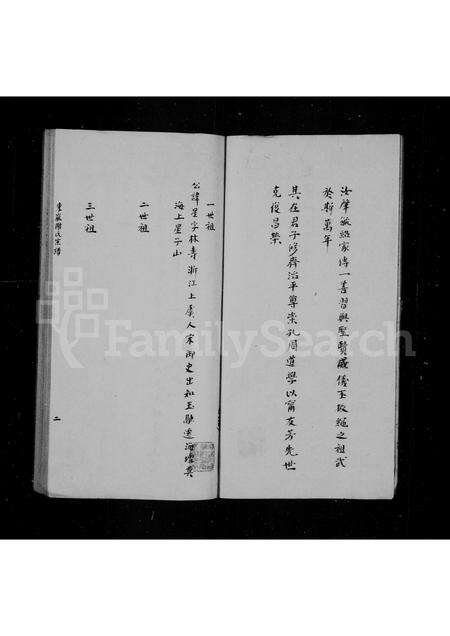 汝肇敏經家傳一善習興聖賢威儀玉政繩之祖武
於斯萬年
其在君子修齊治平尊崇孔周道學以甯友芳先世
克復昌榮
一世祖
公諱星字林壽浙江上虞人宋御史出知玉融遂海壇
海上星子山
二世祖
三世祖
氏宗譜
二
FamilySearch